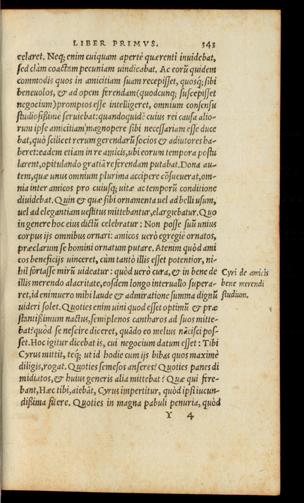 LIBER PRIMVS. 343
celaret. Neq; enim cuiquam apertè quærenti inuidebat,
sed clàm coactam pecuniam uindicabat. Ac eorū quidem
commodis quos in amicitiam suam recepisset, quosq; sibi
beneuolos, & ad opem ferendam (quodcunq; suscepisset
negocium) promptos esse intelligeret, omnium consensu
studiosissimè seruiebat: quandoquidē cuius rei causa alio-
rum ipse amicitiam magnopere sibi necessariam esse duce
bat, quò scilicet rerum gerendarū socios & adiutores ha-
beret: eadem etiam in re amicis, ubi eorum tempora postu
larent, opitulando gratiā referendam putabat. Dona au-
tem, quæ unus omnium plurima accipere cōsueuerat, om-
nia inter amicos pro cuiusq; uitæ ac temporū conditione
diuidebat. Quin & quæ sibi ornamenta uel ad belli usum,
uel ad elegantiam uestitus mittebantur, elargiebatur. Quo
in genere hoc eius dictū celebratur: Non posse suū unius
corpus ijs omnibus ornari: amicos uerò egregiè ornatos,
præclarum se homini ornatum putare. Atenim quòd ami
cos beneficijs uinceret, cùm tantò illis esset potentior, ni-
hil fortasse mirū uideatur: quòd uerò cura, & in bene de
illis merendo alacritate, eosdem longo interuallo supera-
ret, id enimuero mihi laude & admiratione summa dignū
uideri solet. Quoties enim uini quod esset optimū & præ
stantissimum nactus, semiplenos cantharos ad suos mitte-
bat? quòd se nescire diceret, quādo eo melius nācisci pos-
set. Hoc igitur dicebat is, cui negocium datum esset: Tibi
Cyrus mittit, teq; ut id hodie cum ijs bibas quos maximè
diligis, rogat. Quoties semesos anseres? Quoties panes di
midiatos, & huius generis alia mittebat? Quæ qui fire-
bant, Hæc tibi, aiebāt, Cyrus impertitur, quòd ipsi iucun-
dissima fuere. Quoties in magna pabuli penuria, quòd
Y 4
Cyri de amicis
bene merendi
studium.